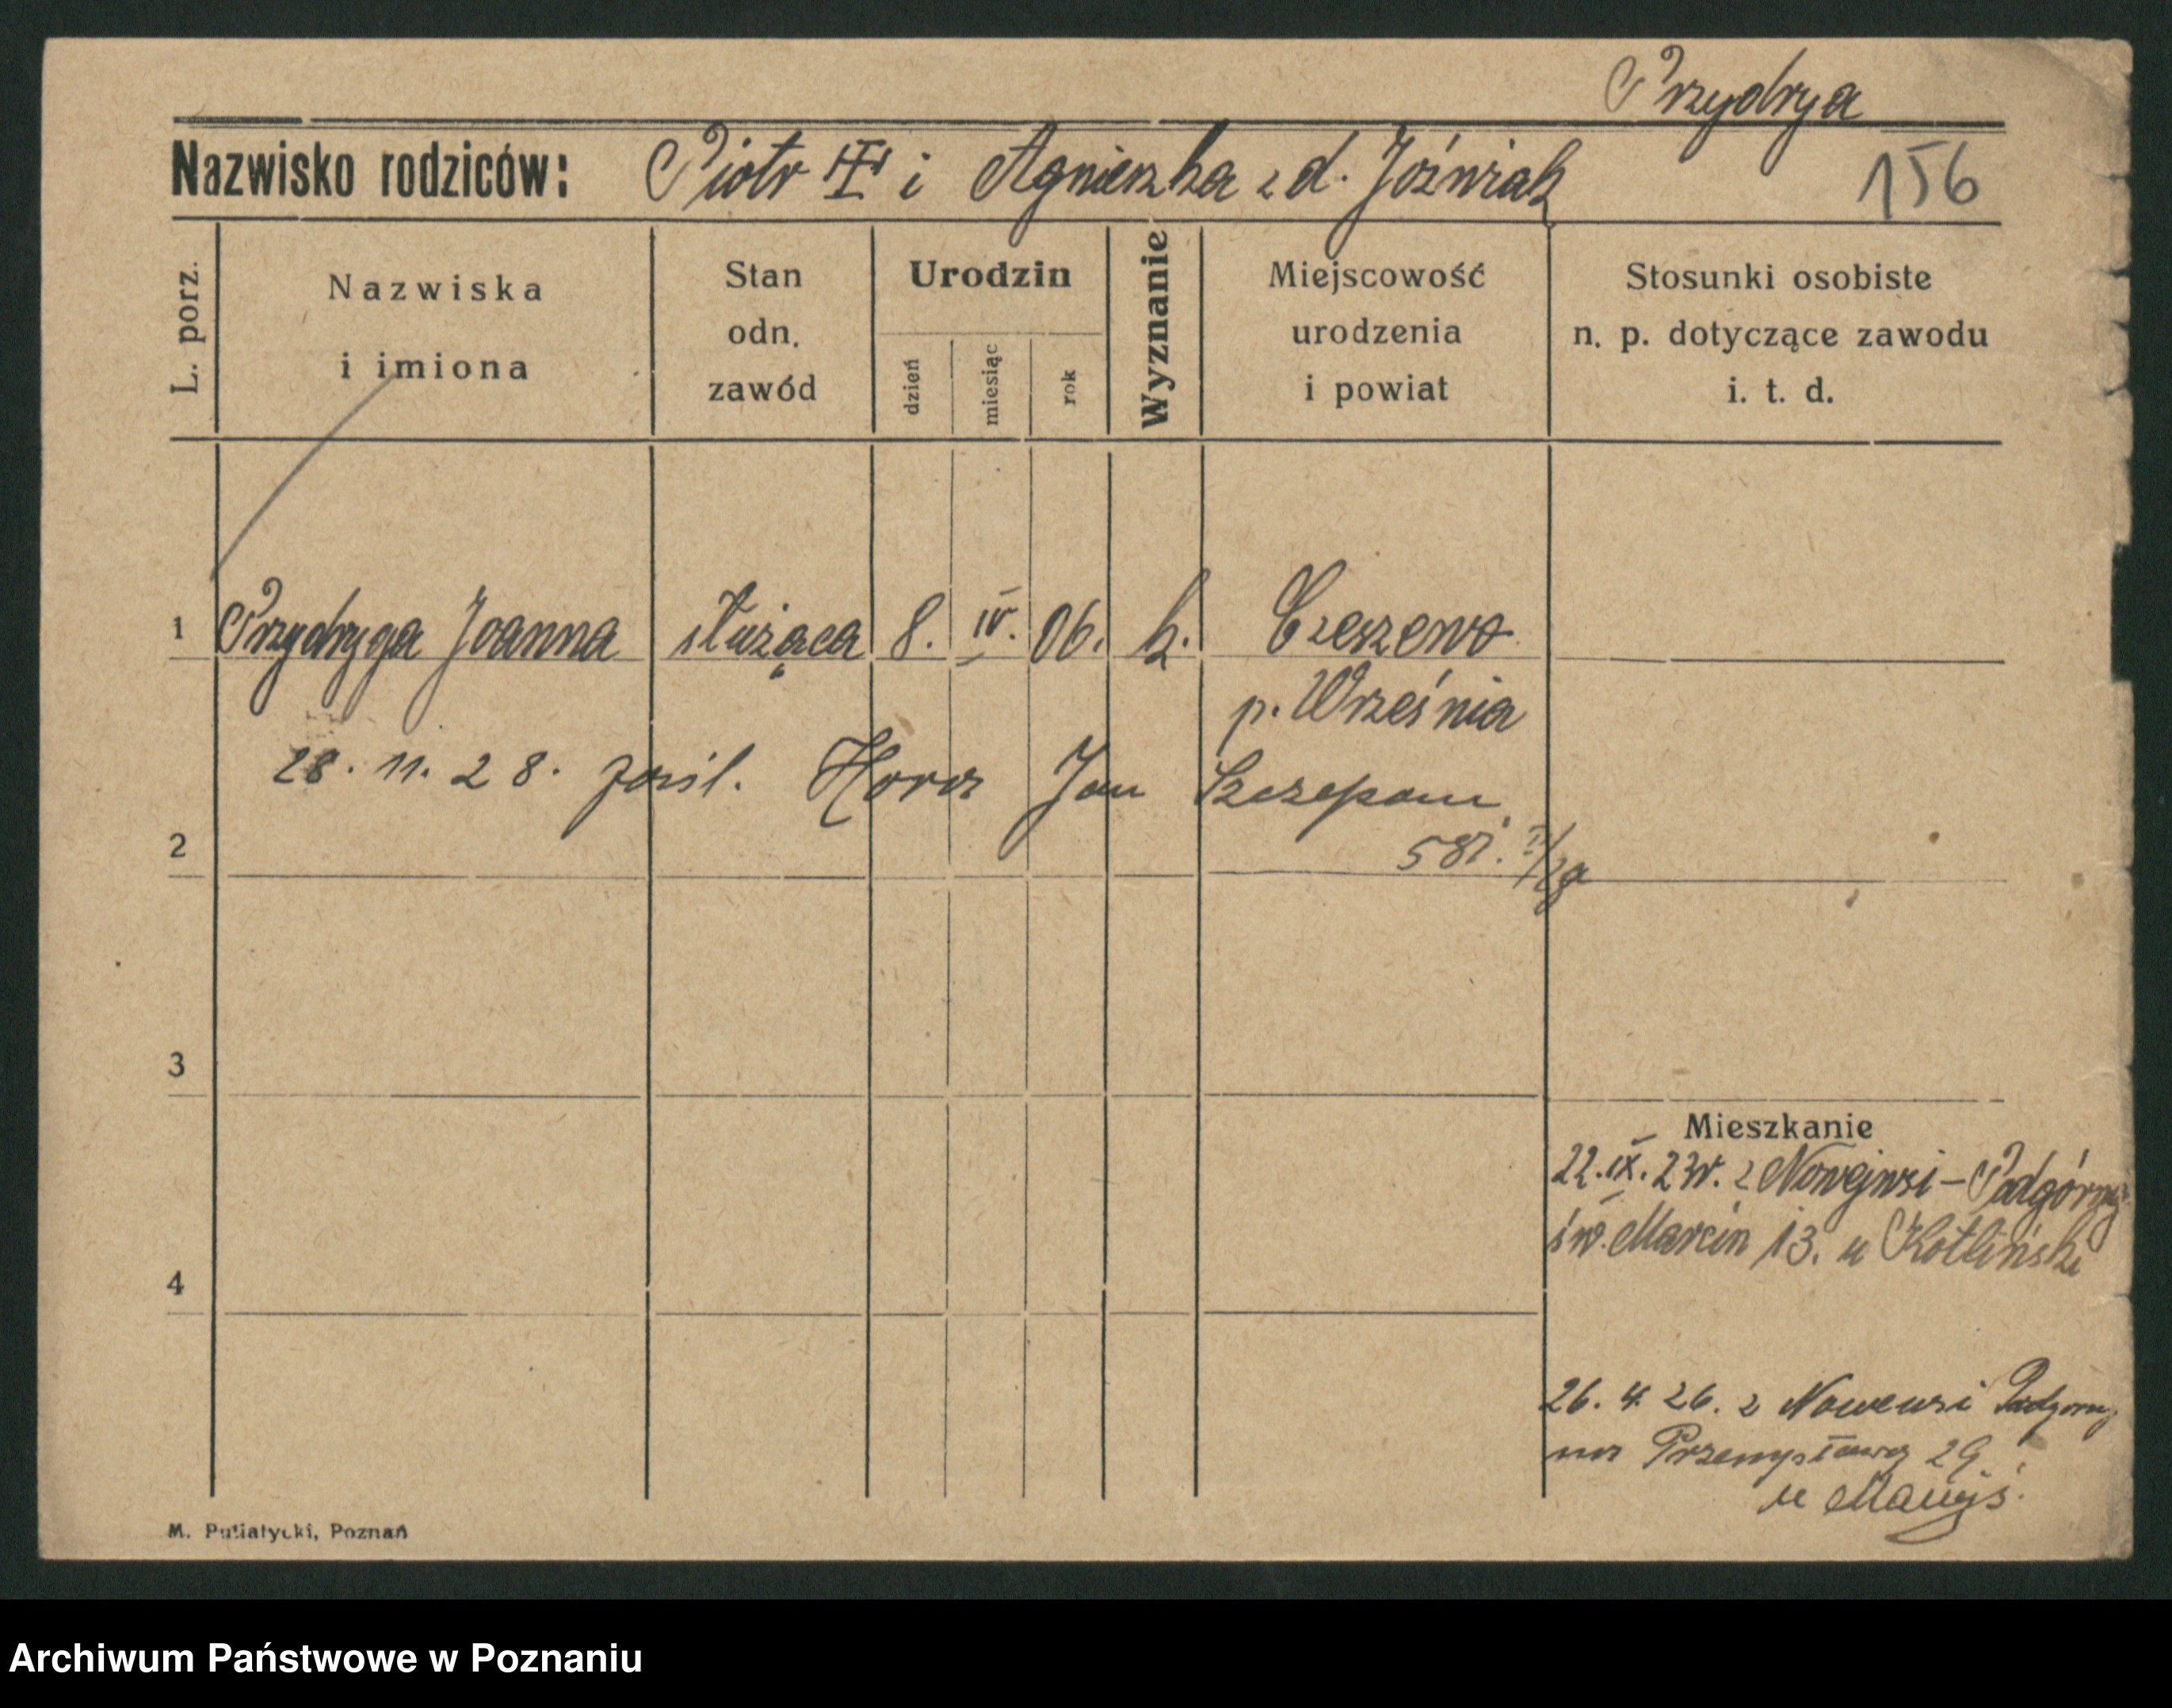 Przydryga
Nazwisko rodziców: Piotr i Agnieszka z d. Jóźwiak
156
L. porz.
Nazwiska
i imiona
Stan
odn.
zawód
Urodzin
dzień
miesiąc
rok
Wyznanie
Miejscowość
urodzenia
i powiat
Stosunki osobiste
n. p. dotyczące zawodu
i. t. d.
1 Przydryga Joanna służąca 8. IV. 06. k. Czeszewo
p. Września
28. 11. 28. zaśl. Jan Szczepan
2
3
4
Mieszkanie
22. IX. 23r. z Nowejwsi - Podgórnej
św. Marcin 13. u Kotliński
26. 4. 26. z Nowewsi Podgorny
na Przemysłową 29
u
M. Putiatycki, Poznań
Archiwum Państwowe w Poznaniu